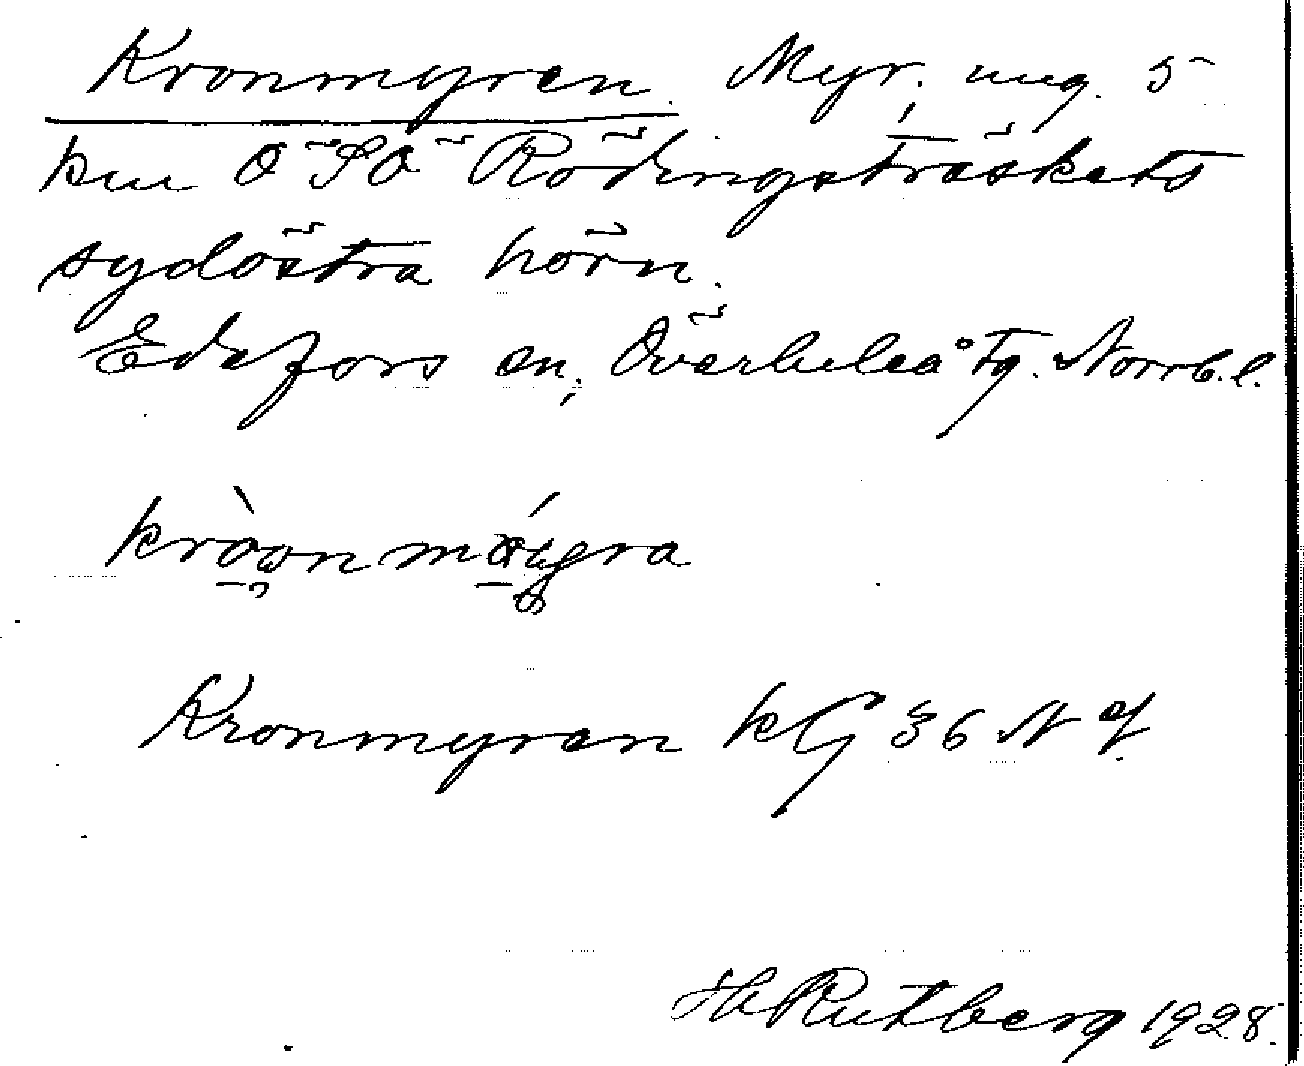 Kronmyren. Myr, ung. 5
km Ö S Ö Rödingsträskets
sydöstra hörn.
Edefors sn, Överluleå tg. Norrb. l.
Kronmyren kG 36 NV.
H Rutberg 1928.